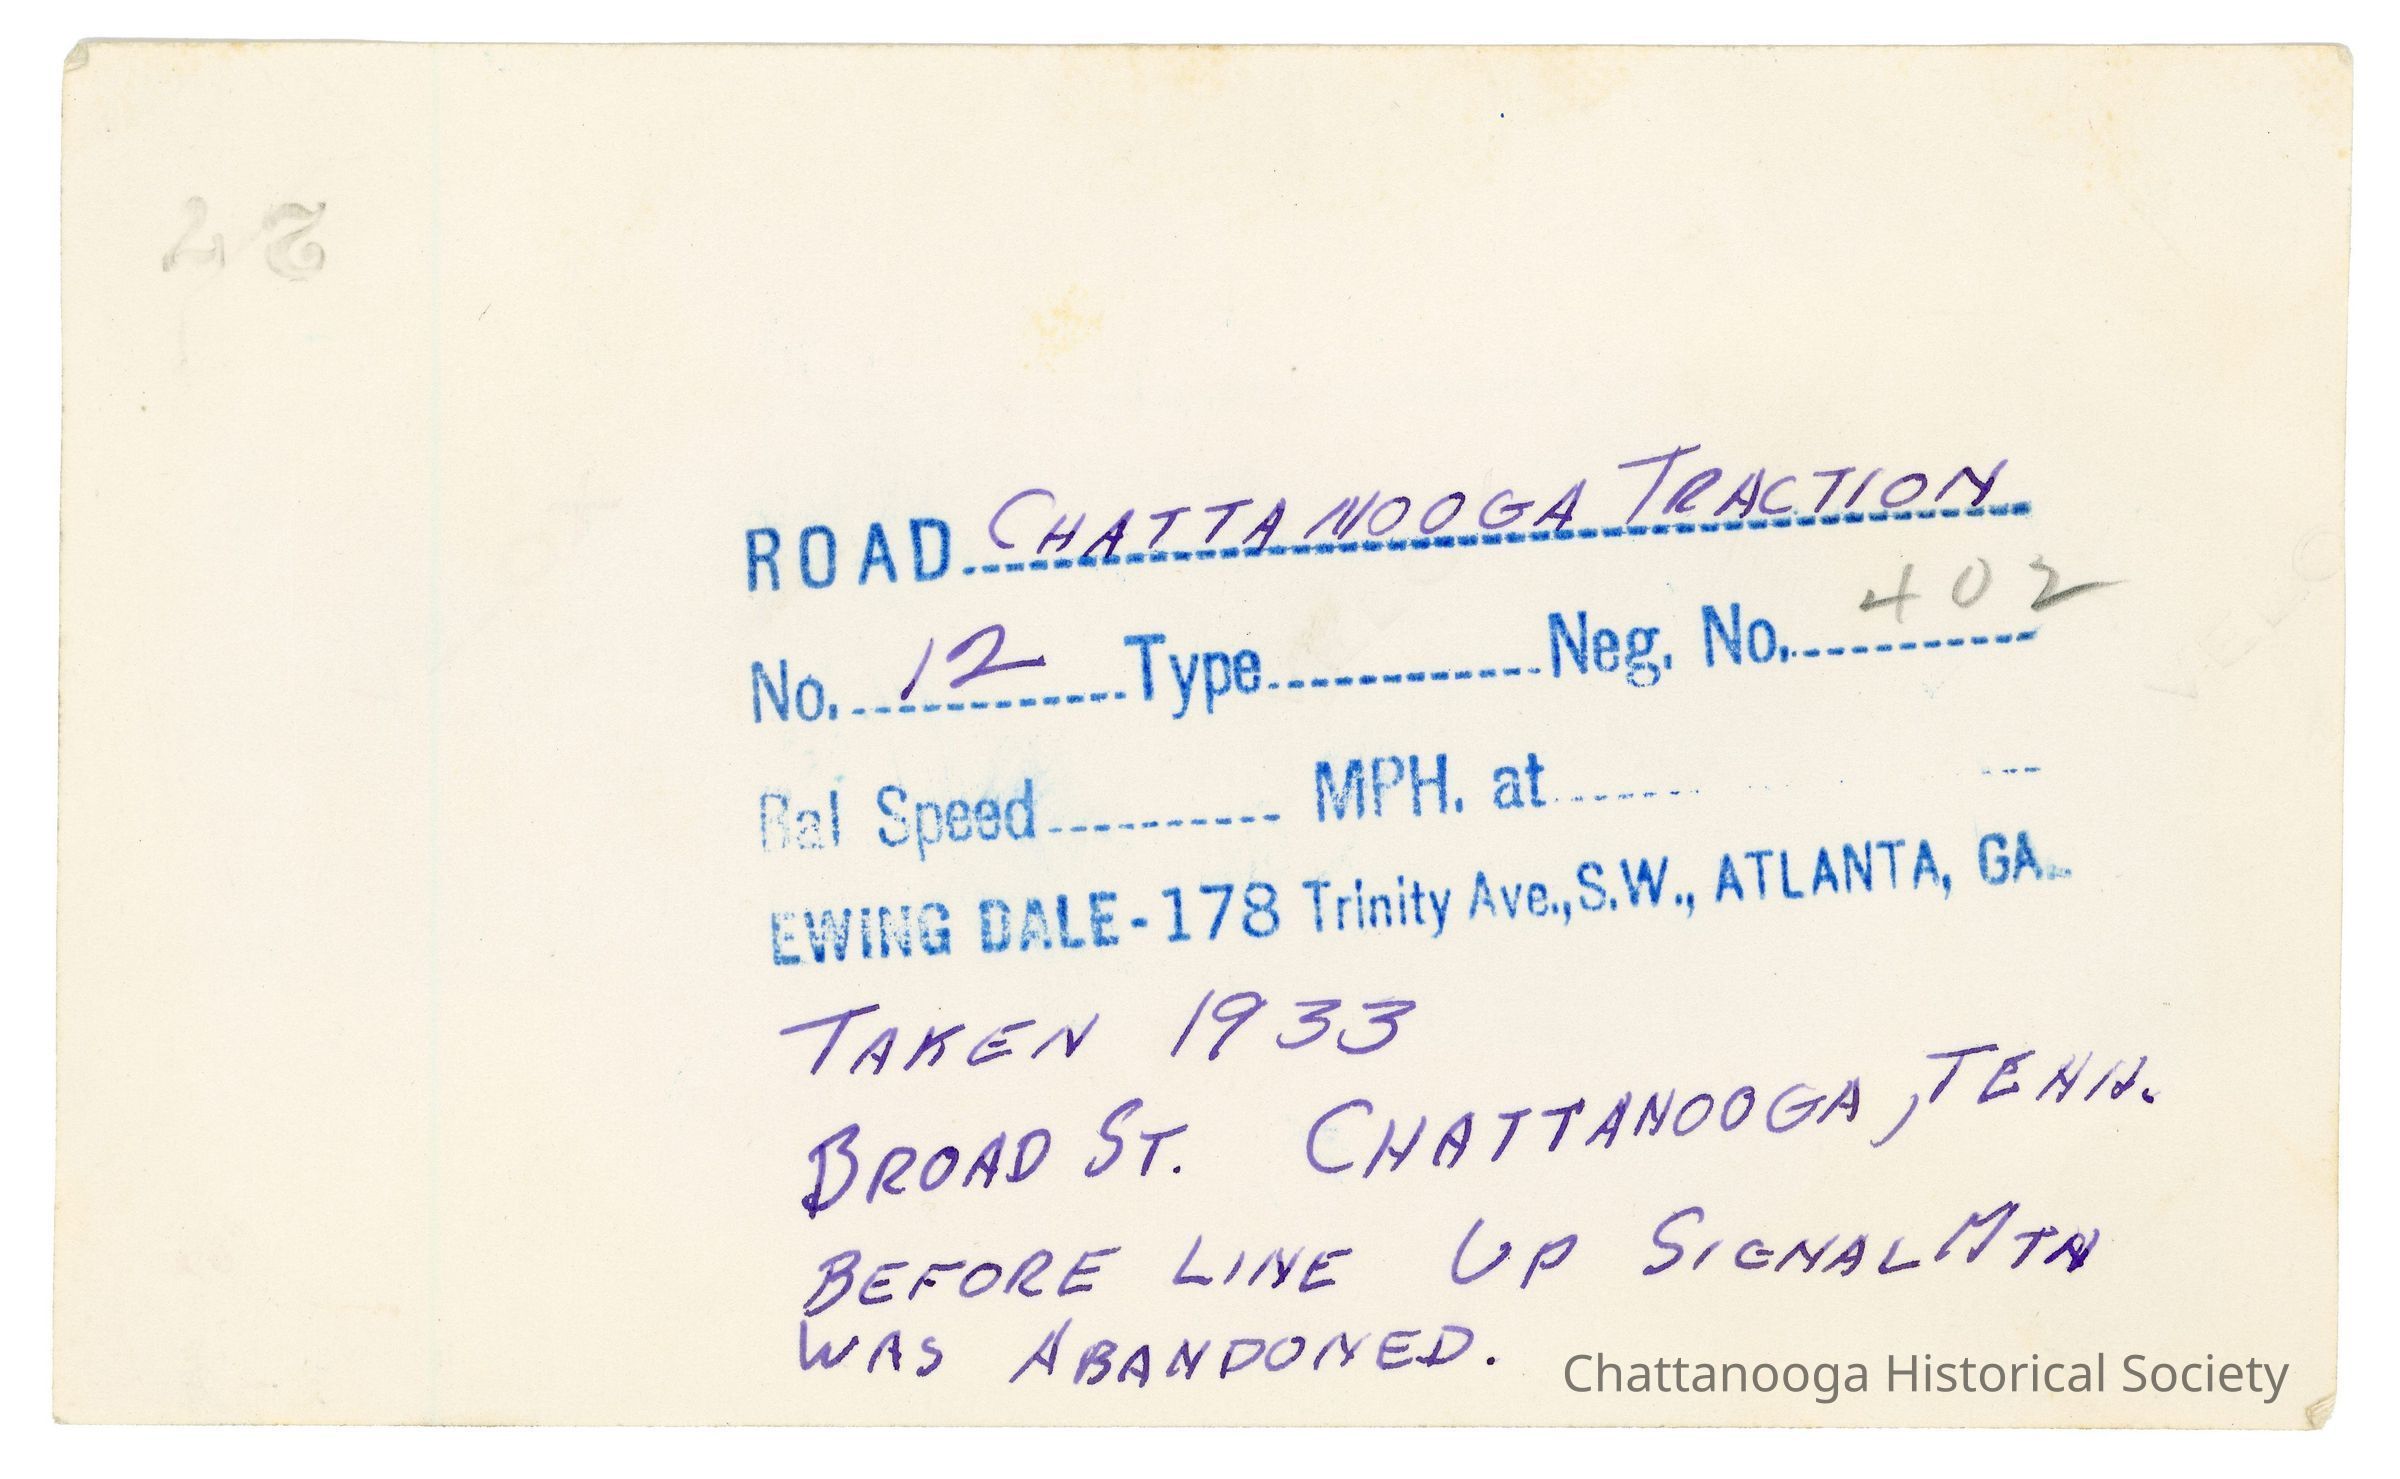 ROAD CHATTANOOGA TRACTION
No. 12 Type Neg. No. 402
Bal Speed MPH. at
EWING DALE-178 Trinity Ave., S.W., ATLANTA, GA.
TAKEN 1933
BROAD ST. CHATTANOOGA, TENN.
BEFORE LINE UP SIGNAL MTN
WAS ABANDONED.
Chattanooga Historical Society